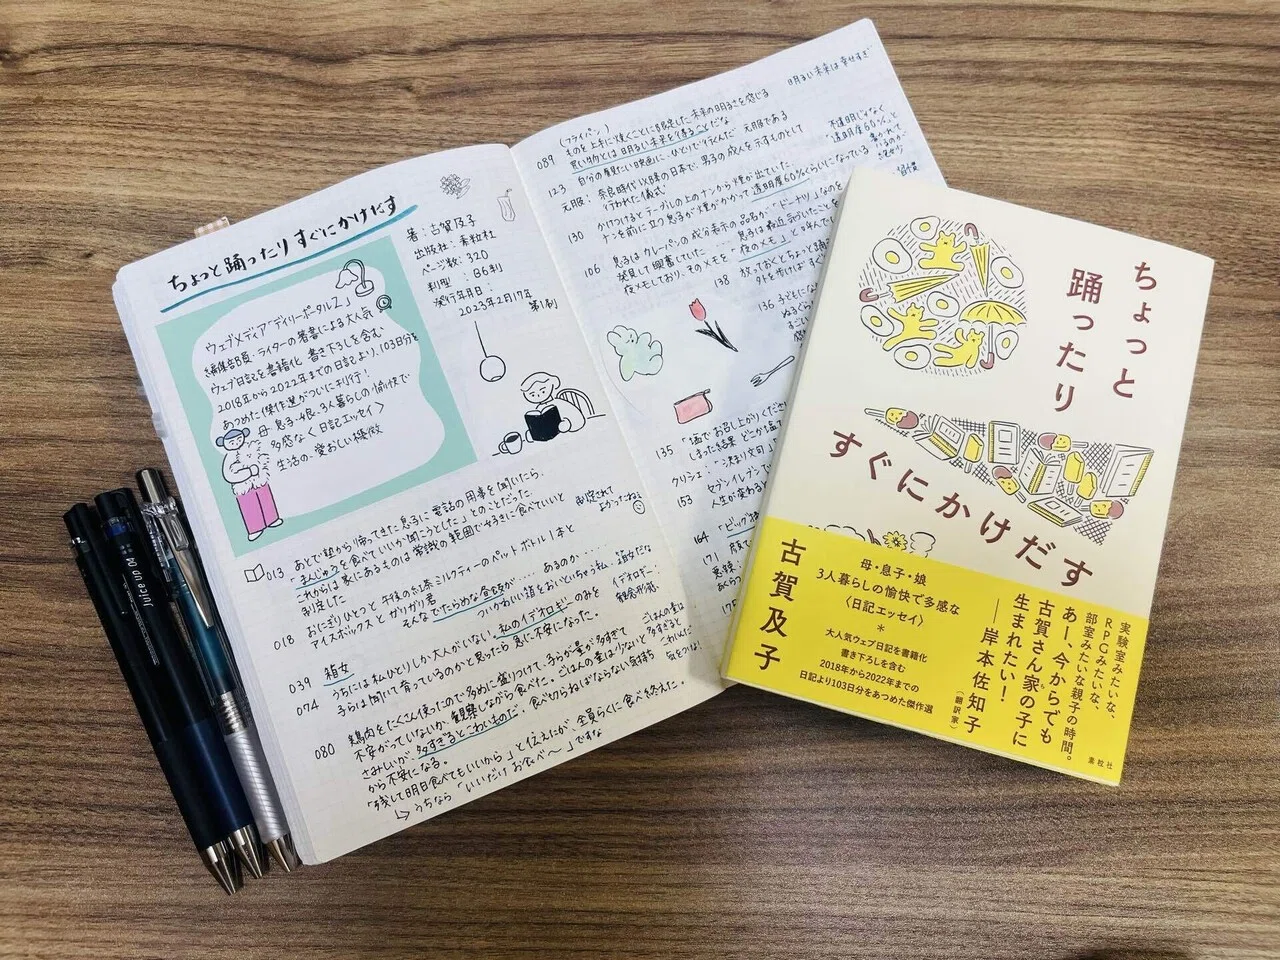 ちょっと踊ったりすぐにかけだす
著：古賀及子
出版社：素粒社
ページ数：320
判型：B6判
発行年月日：
2023年2月17年 第1刷
ウェブメディア「デイリーポータルZ」
編集部員・ライターの著者による大人気
ウェブ日記を書籍化 書き下ろしを含む
2018年から2022年までの日記より、103日分を
あつめた傑作選がついに刊行！
母・息子・娘、3人暮らしの愉快で
多感な〈日記エッセイ〉
生活の、愛おしい機微
013 あとで塾から帰ってきた息子に電話の用事を聞いたら、
「まんじゅうを食べていいか聞こうとした」とのことだった。
これからは家にあるものは常識の範囲で好きに食べていいと
制定した
制定されて
よかったねぇ
018 おにぎりひとっと午後の紅茶ミルクティーのペットボトル1本と
アイスボックスとガリガリ君
そんなでたらめな昼食が…あるのか……
039 箱女
ついかわいい箱をおいといちゃう私、箱女だな
074 うちには私ひとりしか大人がいない。私のイデオロギーのみを
子らは聞いて育っているのかと思ったら急に不安になった。
イデオロギー：
観念形態
080 鶏肉をたくさん使ったので多めに盛りつけて、子らが量が多すぎて
不安がっていないか観察しながら食べた。ごはんの量は少ないと
さみしいが、多すぎるとこわいものだ。食べ切らねばならない気持ち
から不安になる。
「残して明日食べてもいいから」と伝えたが、全員らくに食べ終えた。
→うちなら「いいだけお食べ〜」ですな
ごはんの量は
多すぎると
こわい
089 (フライパン)
ものを上手に焼くことに限定した未来の明るさを感じる
買い物とは明るい未来を得ることだな
明るい未来は幸せすぎ
123 自分の見たい映画に、ひとりで行くんだ 元服である
元服：奈良時代以降の日本で、男子の成人を示すものとして
行われた儀式
130 かけつけるとテーブルの上のナンから煙が出ていた。
ナンを前に立つ息子が煙がかかって透明度60%くらいになっている
不透明じゃなく
「透明度60%」と
書かれて
いるのが
106 息子はカレーパンの成分表示の品名が「ドーナツ」なのを
発見して興奮していた…息子は最近気づいたことを
夜メモしており、そのメモを「夜のメモ」と呼んで
138 放っておくとちょっと踊
外を歩けばすぐ
136 子どもにな
ぬるく
すごい
135 「塩でお召し上がりくださ
しまった結果 どこか塩
クリシェ：「決まり文句」
153 セブンイレブンで
人生が変わると
164 「ビッグ
171
175
Juice up 04
ちょっと
踊ったり
すぐにかけだす
古賀及子
母・息子・娘
3人暮らしの愉快で多感な
〈日記エッセイ〉
＊
大人気ウェブ日記を書籍化
書き下ろしを含む
2018年から2022年までの
日記より103日分をあつめた傑作選
実験室みたいな、
RPGみたいな、
部室みたいな親子の時間。
あー、今からでも
古賀さん家の子に
生まれたい！
——岸本佐知子
（翻訳家）
素粒社